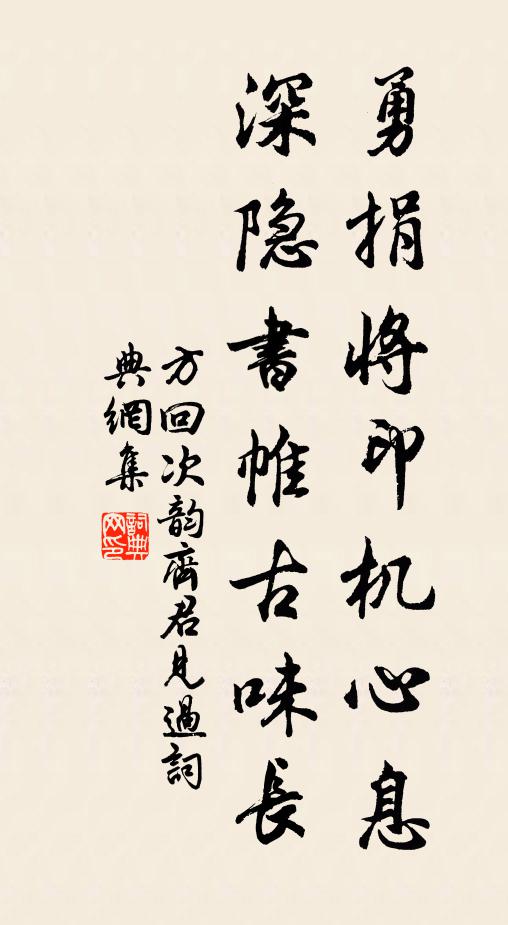 勇捐将印机心息
深隐書帷古味長
方回次韵齊君見過詞
典網集
詞典网印